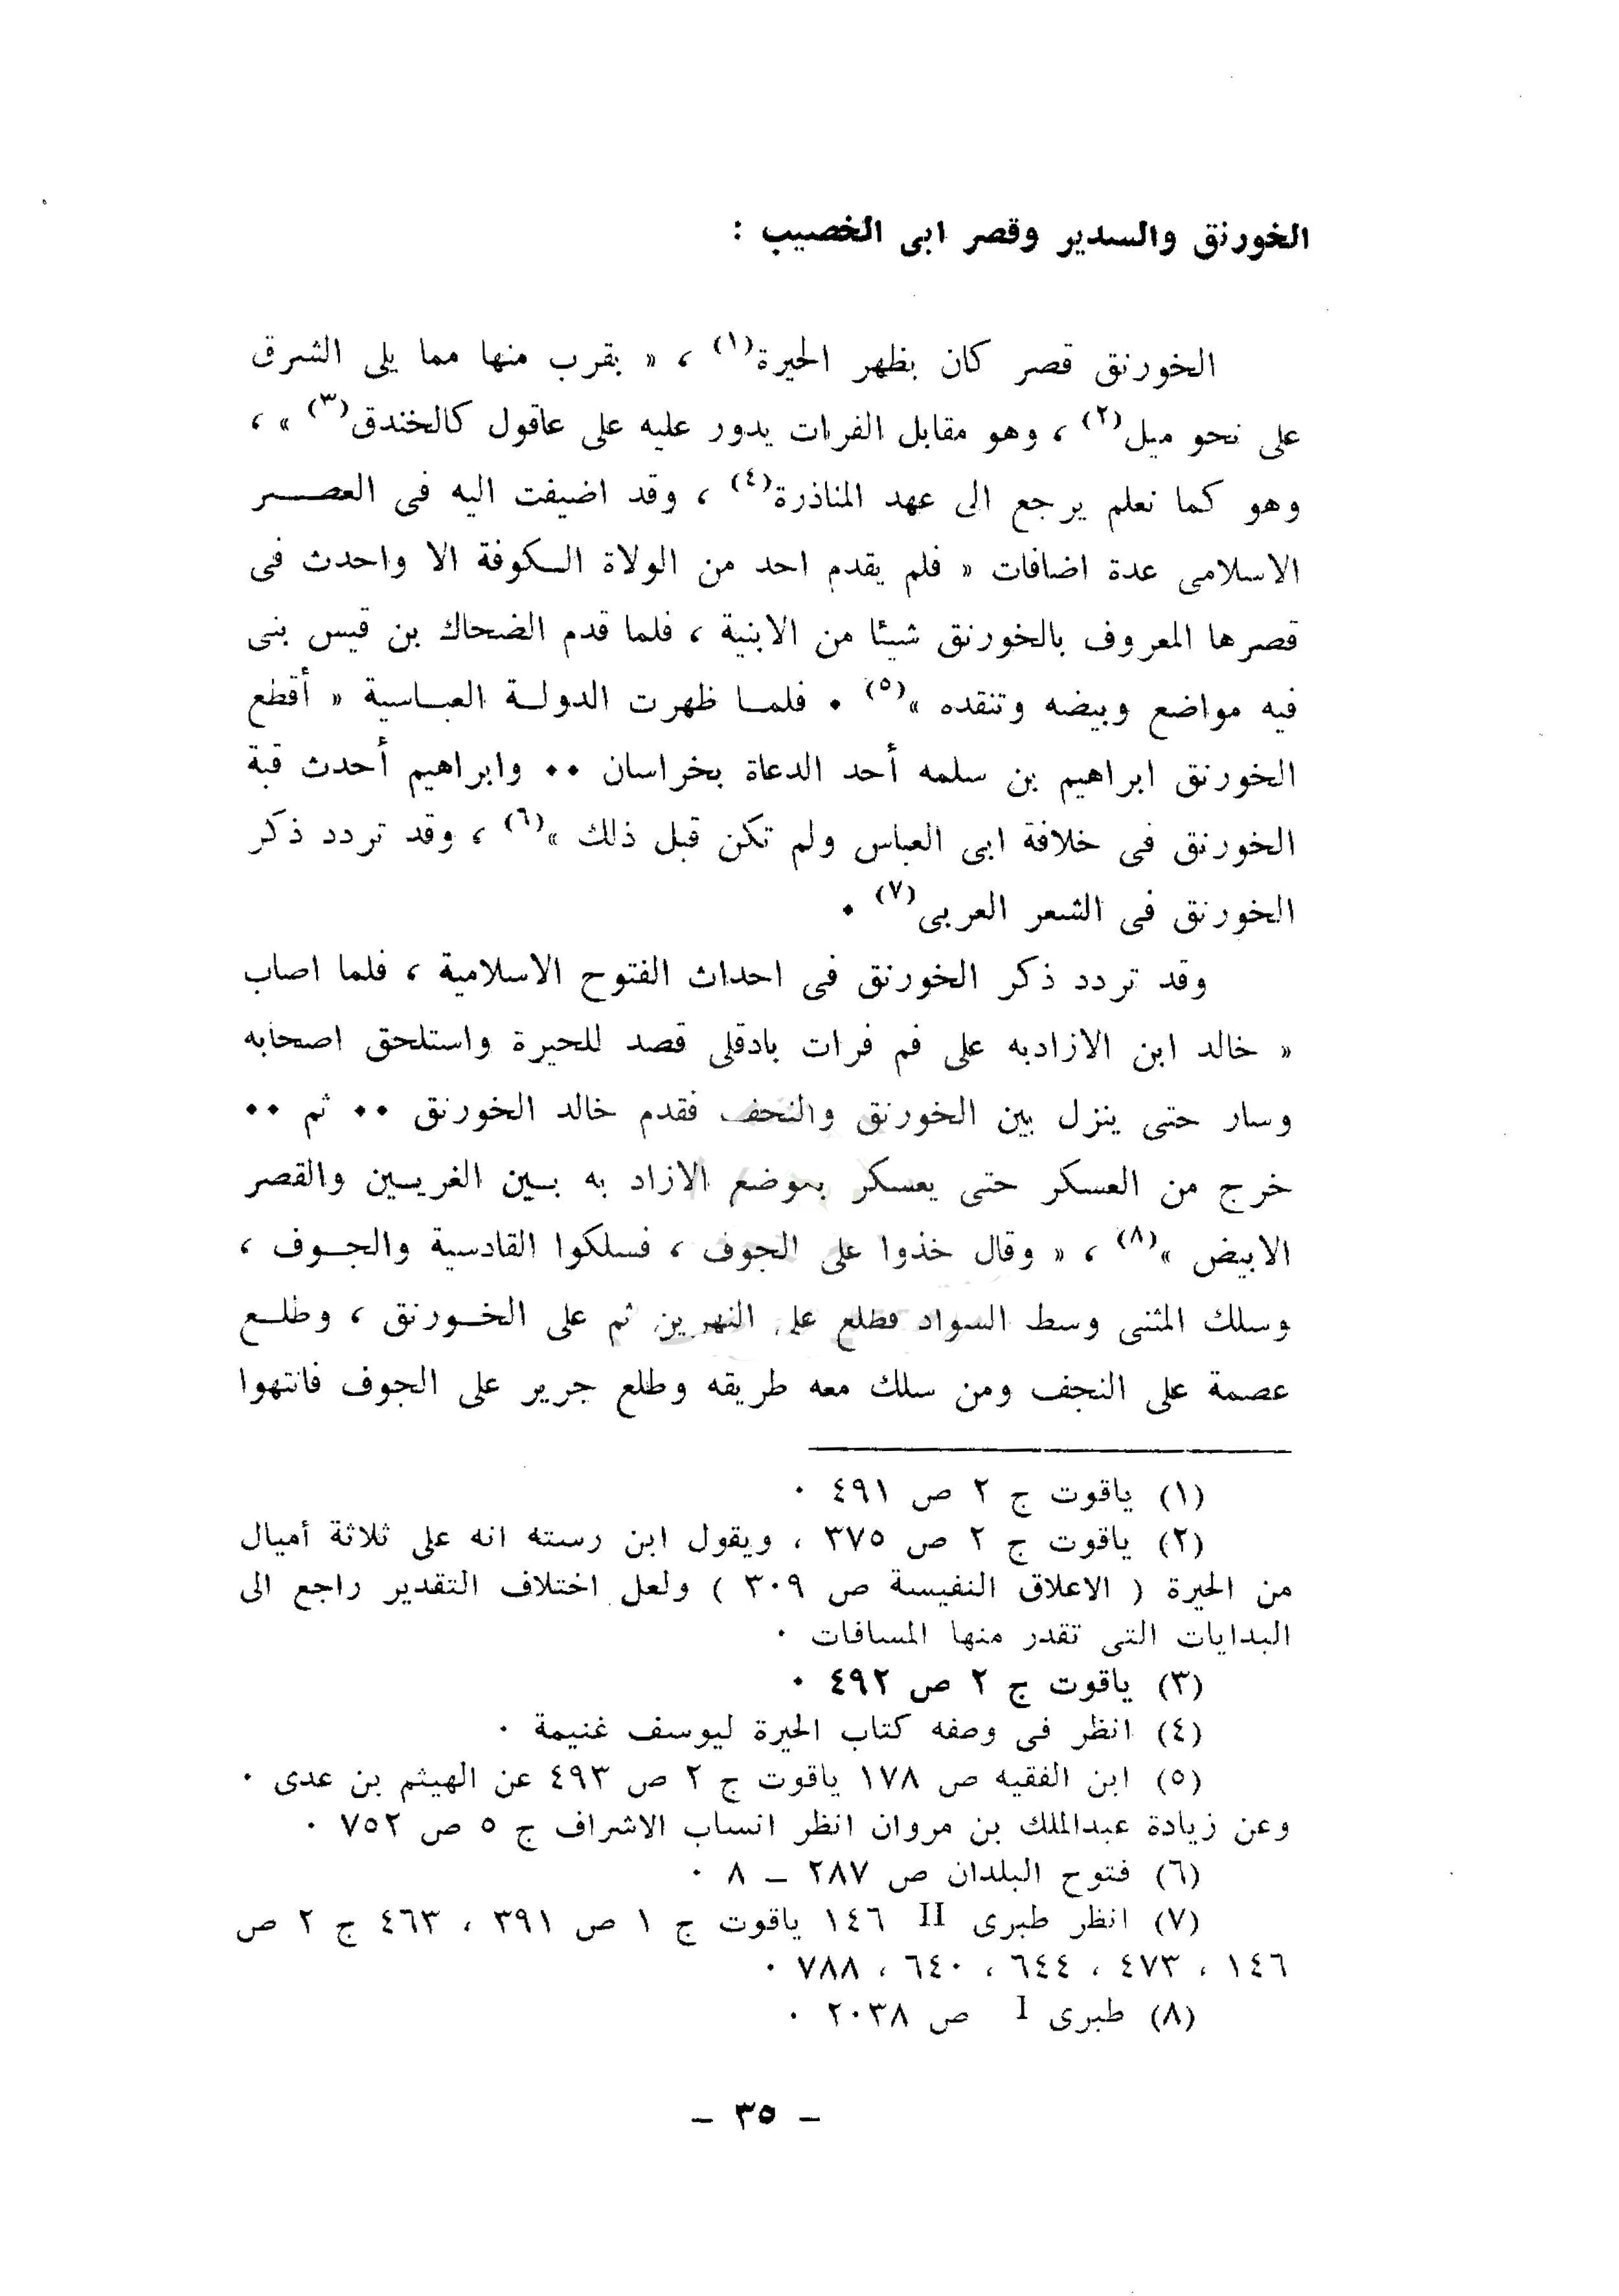 الخورنق والسدير وقصر ابى الخصيب :
الخورنق قصر كان بظهر الحيرة(١) ، « بقرب منها مما يلى الشرق
على نحو ميل(٢) ، وهو مقابل الفرات يدور عليه على عاقول كالخندق(٣) » ،
وهو كما نعلم يرجع الى عهد المناذرة(٤) ، وقد اضيفت اليه فى العصر
الاسلامى عدة اضافات « فلم يقدم احد من الولاة الكوفة الا واحدث فى
قصرها المعروف بالخورنق شيئا من الابنية ، فلما قدم الضحاك بن قيس بنى
فيه مواضع وبيضه وتنقده »(٥) ٠ فلما ظهرت الدولة العباسية « أقطع
الخورنق ابراهيم بن سلمه أحد الدعاة بخراسان ٠٠ وابراهيم أحدث قبة
الخورنق فى خلافة ابى العباس ولم تكن قبل ذلك »(٦) ، وقد تردد ذكر
الخورنق فى الشعر العربى(٧) ٠
وقد تردد ذكر الخورنق فى احداث الفتوح الاسلامية ، فلما اصاب
« خالد ابن الازادبه على فم فرات بادقلى قصد للحيرة واستلحق اصحابه
وسار حتى ينزل بين الخورنق والنحف فقدم خالد الخورنق ٠٠ ثم ٠٠
خرج من العسكر حتى يعسكر بموضع الازاد به بين الغريين والقصر
الابيض »(٨) ، « وقال خذوا على الجوف ، فسلكوا القادسية والجوف ،
وسلك المثنى وسط السواد فطلع على النهرين ثم على الخورنق ، وطلع
عصمة على النجف ومن سلك معه طريقه وطلع جرير على الجوف فانتهوا
(١) ياقوت ج ٢ ص ٤٩١ ٠
(٢) ياقوت ج ٢ ص ٣٧٥ ، ويقول ابن رسته انه على ثلاثة أميال
من الحيرة ( الاعلاق النفيسة ص ٣٠٩ ) ولعل اختلاف التقدير راجع الى
البدايات التى تقدر منها المسافات ٠
(٣) ياقوت ج ٢ ص ٤٩٢ ٠
(٤) انظر فى وصفه كتاب الحيرة ليوسف غنيمة ٠
(٥) ابن الفقيه ص ١٧٨ ياقوت ج ٢ ص ٤٩٣ عن الهيثم بن عدى ٠
وعن زيادة عبدالملك بن مروان انظر انساب الاشراف ج ٥ ص ٧٥٢ ٠
(٦) فتوح البلدان ص ٢٨٧ – ٨ ٠
(٧) انظر طبرى II ١٤٦ ياقوت ج ١ ص ٣٩١ ، ٤٦٣ ج ٢ ص
١٤٦ ، ٤٧٣ ، ٦٤٤ ، ٦٤٠ ، ٧٨٨ ٠
(٨) طبرى I ص ٢٠٣٨ ٠
– ٣٥ –